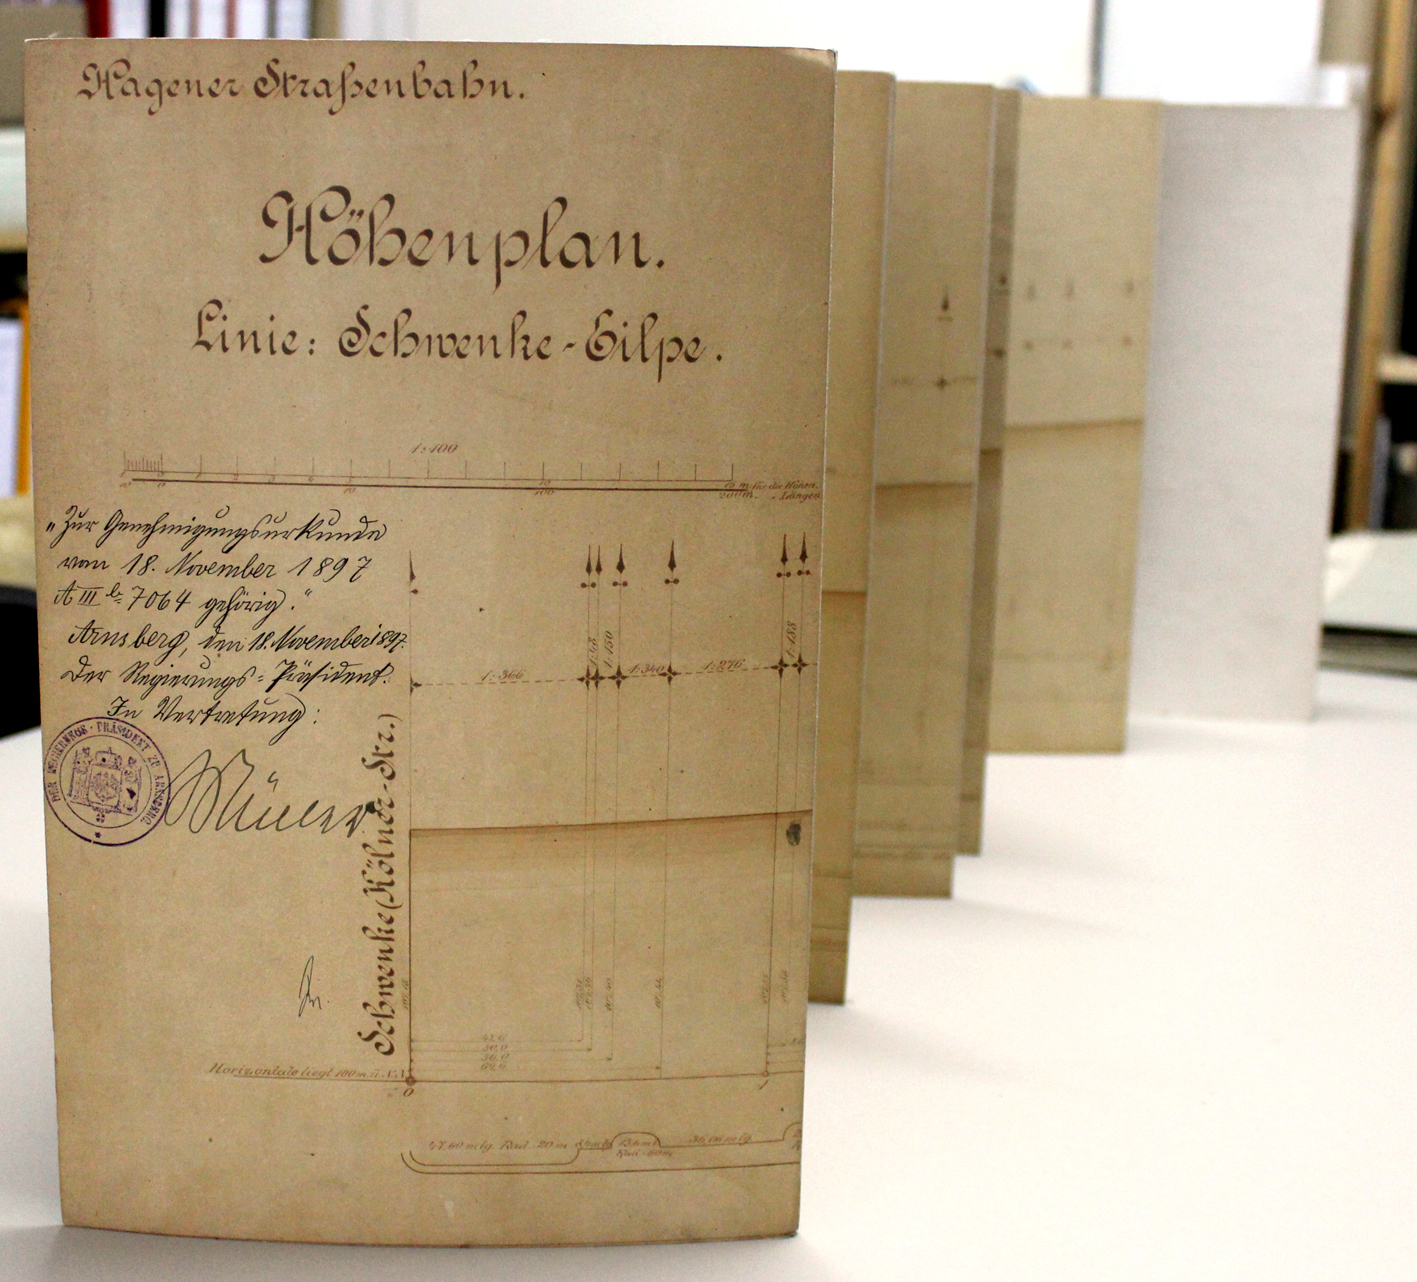 Hagener Straßenbahn.
Höhenplan.
Linie: Schwenke-Eilpe.
1:400
10 m. für die Höhen.
200 m. " Längen
"Zur Genehmigungsurkunde
vom 18. November 1897
A III b. 7064 gehörig."
Arnsberg, den 18. November 1897.
Der Regierungs-Präsident.
In Vertretung:
Müller
DER REGIERUNGS-PRÄSIDENT ZU ARNSBERG
Schwenke (Kölner-Str.)
1:366
1:150
1:340
1:276
1:188
47,6
50,0
56,0
Horizontale liegt 100 m. ü. N.N.
0
1
47,60 m lg. Rad. 20 m